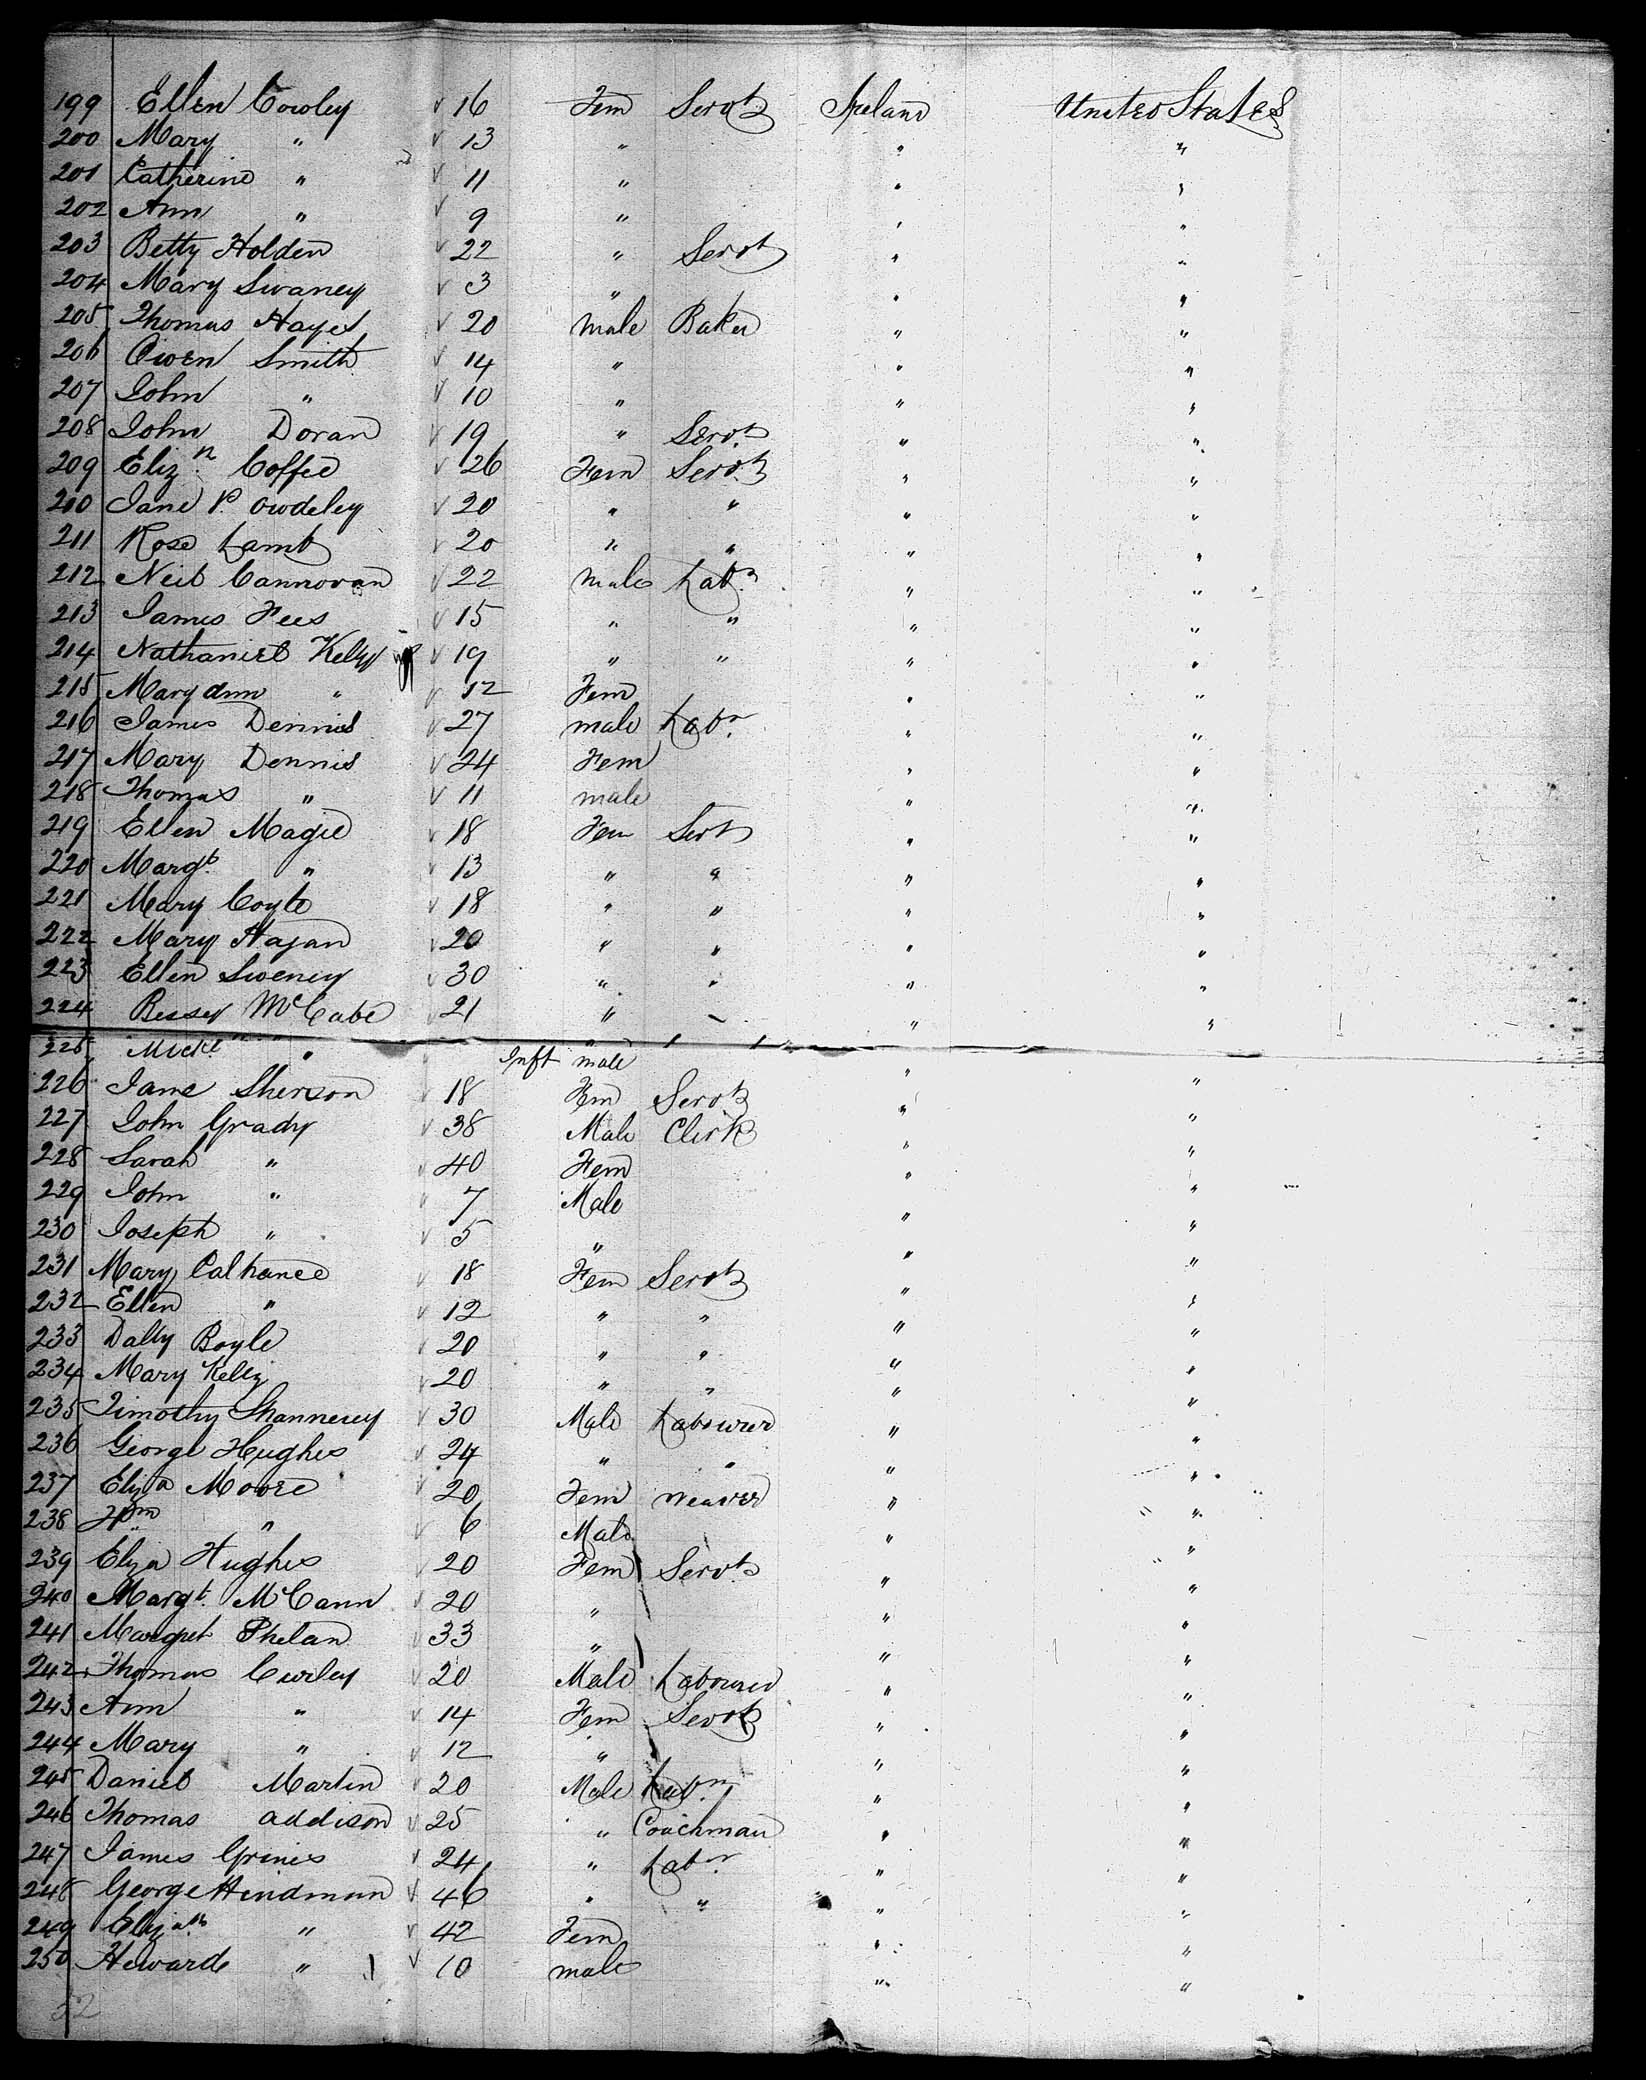 199 Ellen Cowley 16 Fem Servt Ireland United States
200 Mary " 13 " " "
201 Catherine " 11 " " "
202 Ann " 9 " " "
203 Betty Holden 22 " Servt " "
204 Mary Swaney 3 " " "
205 Thomas Hayes 20 male Baker " "
206 Owen Smith 14 " " "
207 John " 10 " " "
208 John Doran 19 " Servt " "
209 Eliz Coffee 26 Fem Servt " "
210 Jane 20 " " " "
211 Rose Lamb 20 " " " "
212 Neil Cannovan 22 male Labr " "
213 James Fees 15 " " " "
214 Nathaniel Kelly 19 " " " "
215 Mary Ann " 12 Fem " "
216 James Dennis 27 male Labr " "
217 Mary Dennis 24 Fem " "
218 Thomas " 11 male " "
219 Ellen Magee 18 Fem Servt " "
220 Margt " 13 " " " "
221 Mary Coyle 18 " " " "
222 Mary Hagan 20 " " " "
223 Ellen Sweney 30 " " " "
224 Bessey McCabe 21 " " " "
225 Mickl " Inft male " "
226 Jane Sherson 18 Fem Servt " "
227 John Grady 38 Male Clerk " "
228 Sarah " 40 Fem " "
229 John " 7 Male " "
230 Joseph " 5 " " "
231 Mary Calhance 18 Fem Servt " "
232 Ellen " 12 " " " "
233 Dally Boyle 20 " " " "
234 Mary Kelly 20 " " " "
235 Timothy Shannesey 30 Male Labourer " "
236 George Hughes 24 " " " "
237 Eliza Moore 20 Fem weaver " "
238 Wm " 6 Male " "
239 Eliza Hughes 20 Fem Servt " "
240 Margt McCann 20 " " "
241 Margret Phelan 33 " " "
242 Thomas Curley 20 Male Labourer " "
243 Ann " 14 Fem Servt " "
244 Mary " 12 " " "
245 Daniel Martin 20 Male Labr " "
246 Thomas Addison 25 " Coachman " "
247 James Grines 24 " Labr " "
248 George Hindman 46 " " " "
249 Elizath " 42 Fem " "
250 Hewarde " 10 male " "
52